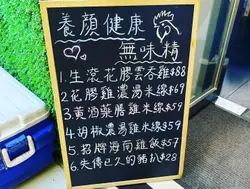 養顏健康
無味精
1.生滾花膠雲吞雞$88
2.花膠雞濃湯米線$69
3.黃酒藥膳雞米線$59
4.胡椒濃湯雞米線$59
5.招牌海南雞飯$57
6.失傳已久的豬扒$28